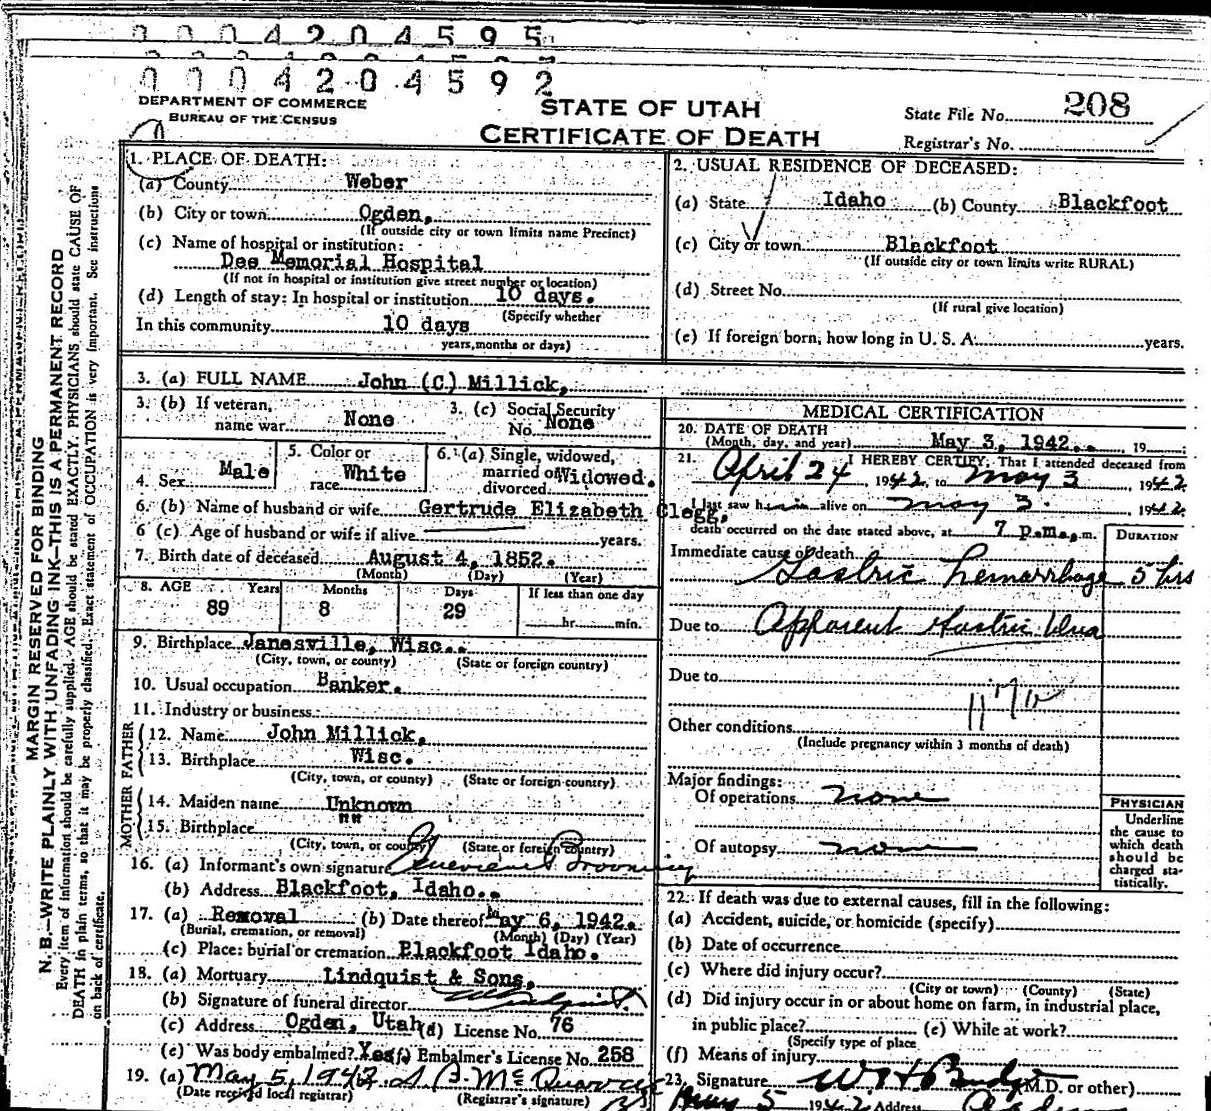 0 0 0 4 2 0 4 5 9 5
0 0 0 4 2 0 4 5 9 2
DEPARTMENT OF COMMERCE
BUREAU OF THE CENSUS
STATE OF UTAH
CERTIFICATE OF DEATH
State File No. 208
Registrar's No.
MARGIN RESERVED FOR BINDING
N. B.—WRITE PLAINLY WITH UNFADING INK—THIS IS A PERMANENT RECORD
Every item of information should be carefully supplied. AGE should be stated EXACTLY. PHYSICIANS should state CAUSE OF
DEATH in plain terms, so that it may be properly classified. Exact statement of OCCUPATION is very important. See instructions
on back of certificate.
1. PLACE OF DEATH:
(a) County Weber
(b) City or town Ogden,
(If outside city or town limits name Precinct)
(c) Name of hospital or institution:
Dee Memorial Hospital
(If not in hospital or institution give street number or location)
(d) Length of stay: In hospital or institution 10 days.
(Specify whether
In this community 10 days
years, months or days)
2. USUAL RESIDENCE OF DECEASED:
(a) State Idaho (b) County Blackfoot
(c) City or town Blackfoot
(If outside city or town limits write RURAL)
(d) Street No.
(If rural give location)
(e) If foreign born, how long in U. S. A. years.
3. (a) FULL NAME John (C.) Millick,
3. (b) If veteran,
name war None
3. (c) Social Security
No. None
4. Sex Male
5. Color or
race White
6. (a) Single, widowed,
married or
divorced Widowed.
6. (b) Name of husband or wife Gertrude Elizabeth Clegg,
6 (c) Age of husband or wife if alive years.
7. Birth date of deceased August 4, 1852.
(Month) (Day) (Year)
8. AGE Years Months Days If less than one day
89 8 29 hr. min.
9. Birthplace Janesville, Wisc..
(City, town, or county) (State or foreign country)
10. Usual occupation Banker.
11. Industry or business.
FATHER
12. Name John Millick,
13. Birthplace Wisc.
(City, town, or county) (State or foreign country)
MOTHER
14. Maiden name Unknown
15. Birthplace ""
(City, town, or county) (State or foreign country)
16. (a) Informant's own signature
(b) Address Blackfoot, Idaho..
17. (a) Removal (b) Date thereof May 6, 1942.
(Burial, cremation, or removal) (Month) (Day) (Year)
(c) Place: burial or cremation Blackfoot Idaho.
18. (a) Mortuary Lindquist & Sons,
(b) Signature of funeral director
(c) Address Ogden, Utah (d) License No. 76
(e) Was body embalmed? Yes (f) Embalmer's License No. 258
19. (a) May 5, 1942
(Date received local registrar) (Registrar's signature)
MEDICAL CERTIFICATION
20. DATE OF DEATH
(Month, day, and year) May 3, 1942.. 19
21. I HEREBY CERTIFY, That I attended deceased from
April 24, 1942, to May 3, 1942
I last saw him alive on May 3, 1942
death occurred on the date stated above, at 7 p.m. m.
DURATION
Immediate cause of death
Gastric hemorrhage 5 hrs
Due to Apparent Gastric Ulcer
Due to
Other conditions
(Include pregnancy within 3 months of death)
Major findings:
Of operations none
Of autopsy none
PHYSICIAN
Underline
the cause to
which death
should be
charged sta-
tistically.
22. If death was due to external causes, fill in the following:
(a) Accident, suicide, or homicide (specify)
(b) Date of occurrence
(c) Where did injury occur?
(City or town) (County) (State)
(d) Did injury occur in or about home on farm, in industrial place,
in public place? (e) While at work?
(Specify type of place
(f) Means of injury
23. Signature (M.D. or other)
May 5 1942 Address